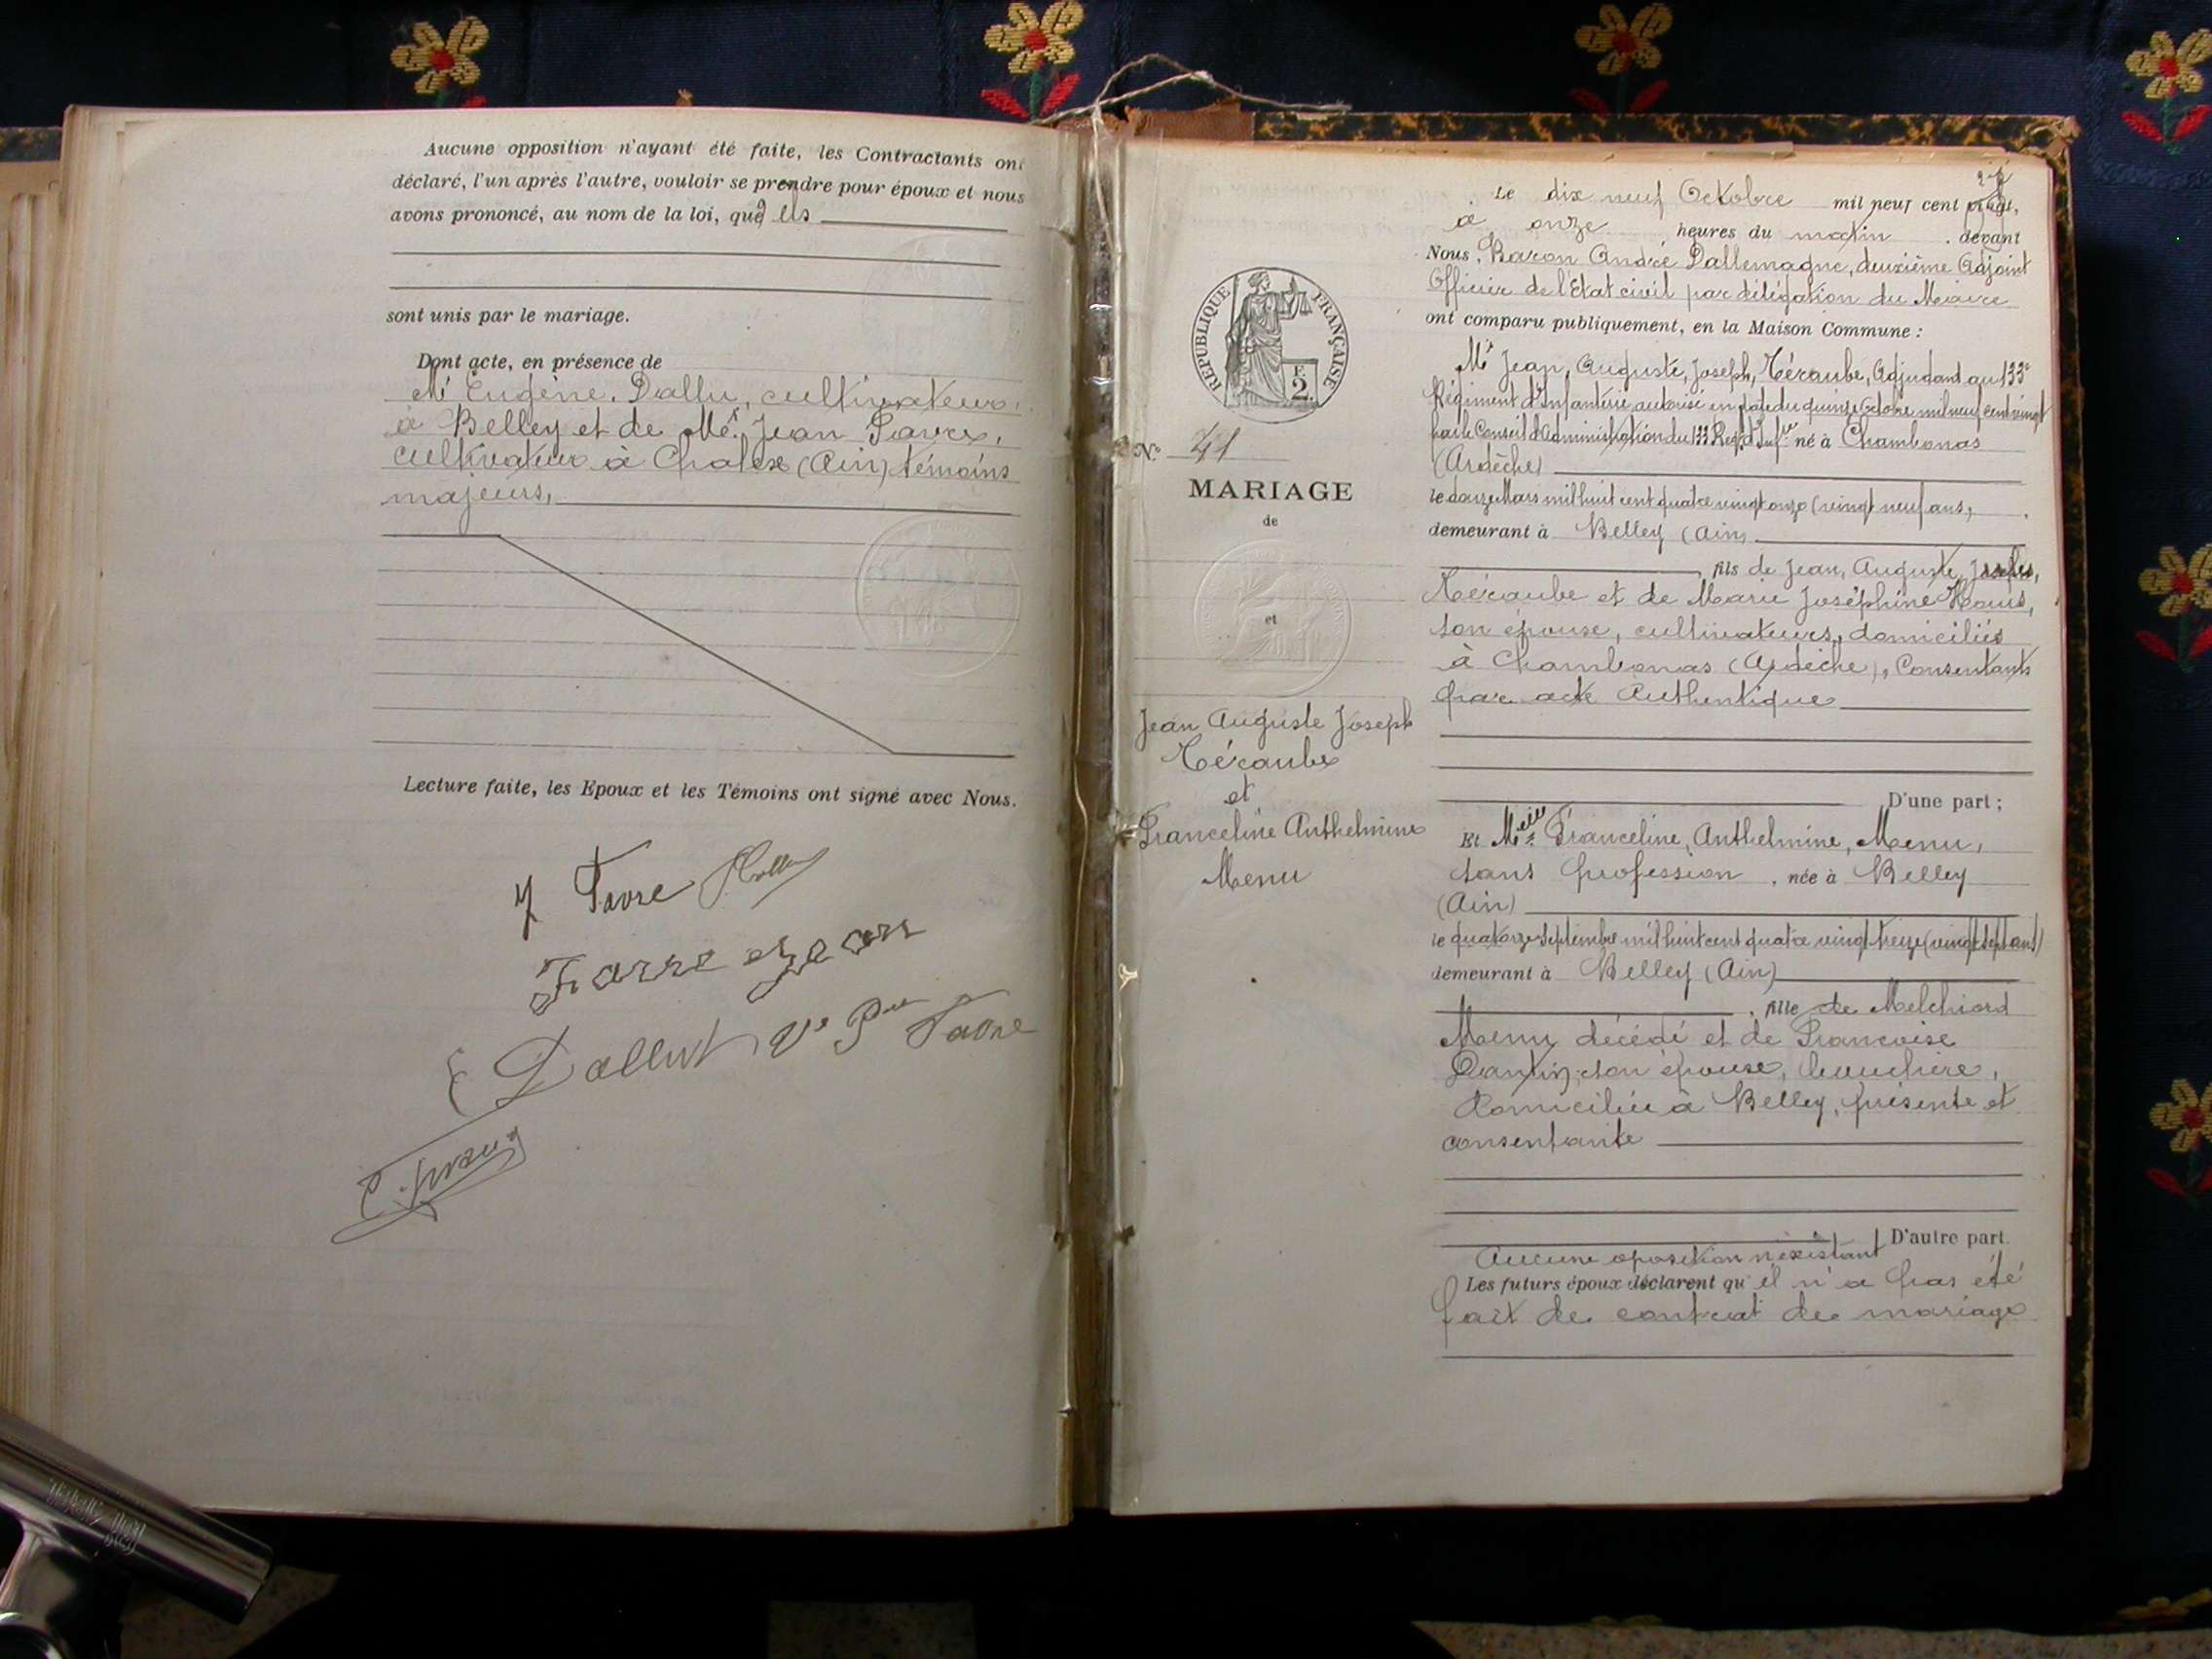 Aucune opposition n'ayant été faite, les Contractants ont
déclaré, l'un après l'autre, vouloir se prendre pour époux et nous
avons prononcé, au nom de la loi, qu'ils
sont unis par le mariage.
Dont acte, en présence de
Mr Eugène, Dallu, cultivateur,
à Belley et de Mr Jean Favre,
cultivateur à Chalex (Ain) témoins
majeurs,
Lecture faite, les Epoux et les Témoins ont signé avec Nous.
J Favre
Favre
E Dallut Ve Favre
RÉPUBLIQUE FRANÇAISE
F.
2.
N° 41
MARIAGE
de
et
Jean Auguste Joseph
Téraube
et
Franceline Anthelmine
Menu
Le dix neuf Octobre mil neuf cent vingt,
à onze heures du matin, devant
Nous, Baron André Dallemagne, deuxième Adjoint
Officier de l'Etat civil par délégation du Maire
ont comparu publiquement, en la Maison Commune :
Mr Jean, Auguste, Joseph, Téraube, Adjudant au 133e
Régiment d'Infanterie autorisé en date du quinze Octobre mil neuf cent vingt
par le Conseil d'Administration du 133 Regt d'Infrie né à Chambonas
(Ardèche)
le douze Mars mil huit cent quatre vingt onze (vingt neuf ans,
demeurant à Belley (Ain)
, fils de Jean, Auguste, Joseph,
Téraube et de Marie Joséphine
son épouse, cultivateurs, domiciliés
à Chambonas (Ardèche), Consentants
par acte Authentique
D'une part ;
Et Melle Franceline, Anthelmine, Menu,
sans profession, née à Belley
(Ain)
le quatorze Septembre mil huit cent quatre vingt treize (vingt sept ans)
demeurant à Belley (Ain)
, fille de Melchiord
Menu décédé et de Francoise
son épouse, bouchère,
domiciliée à Belley, présente et
consentante
D'autre part.
Aucune oposition n'existant
Les futurs époux déclarent qu'il n'a pas été
fait de contrat de mariage